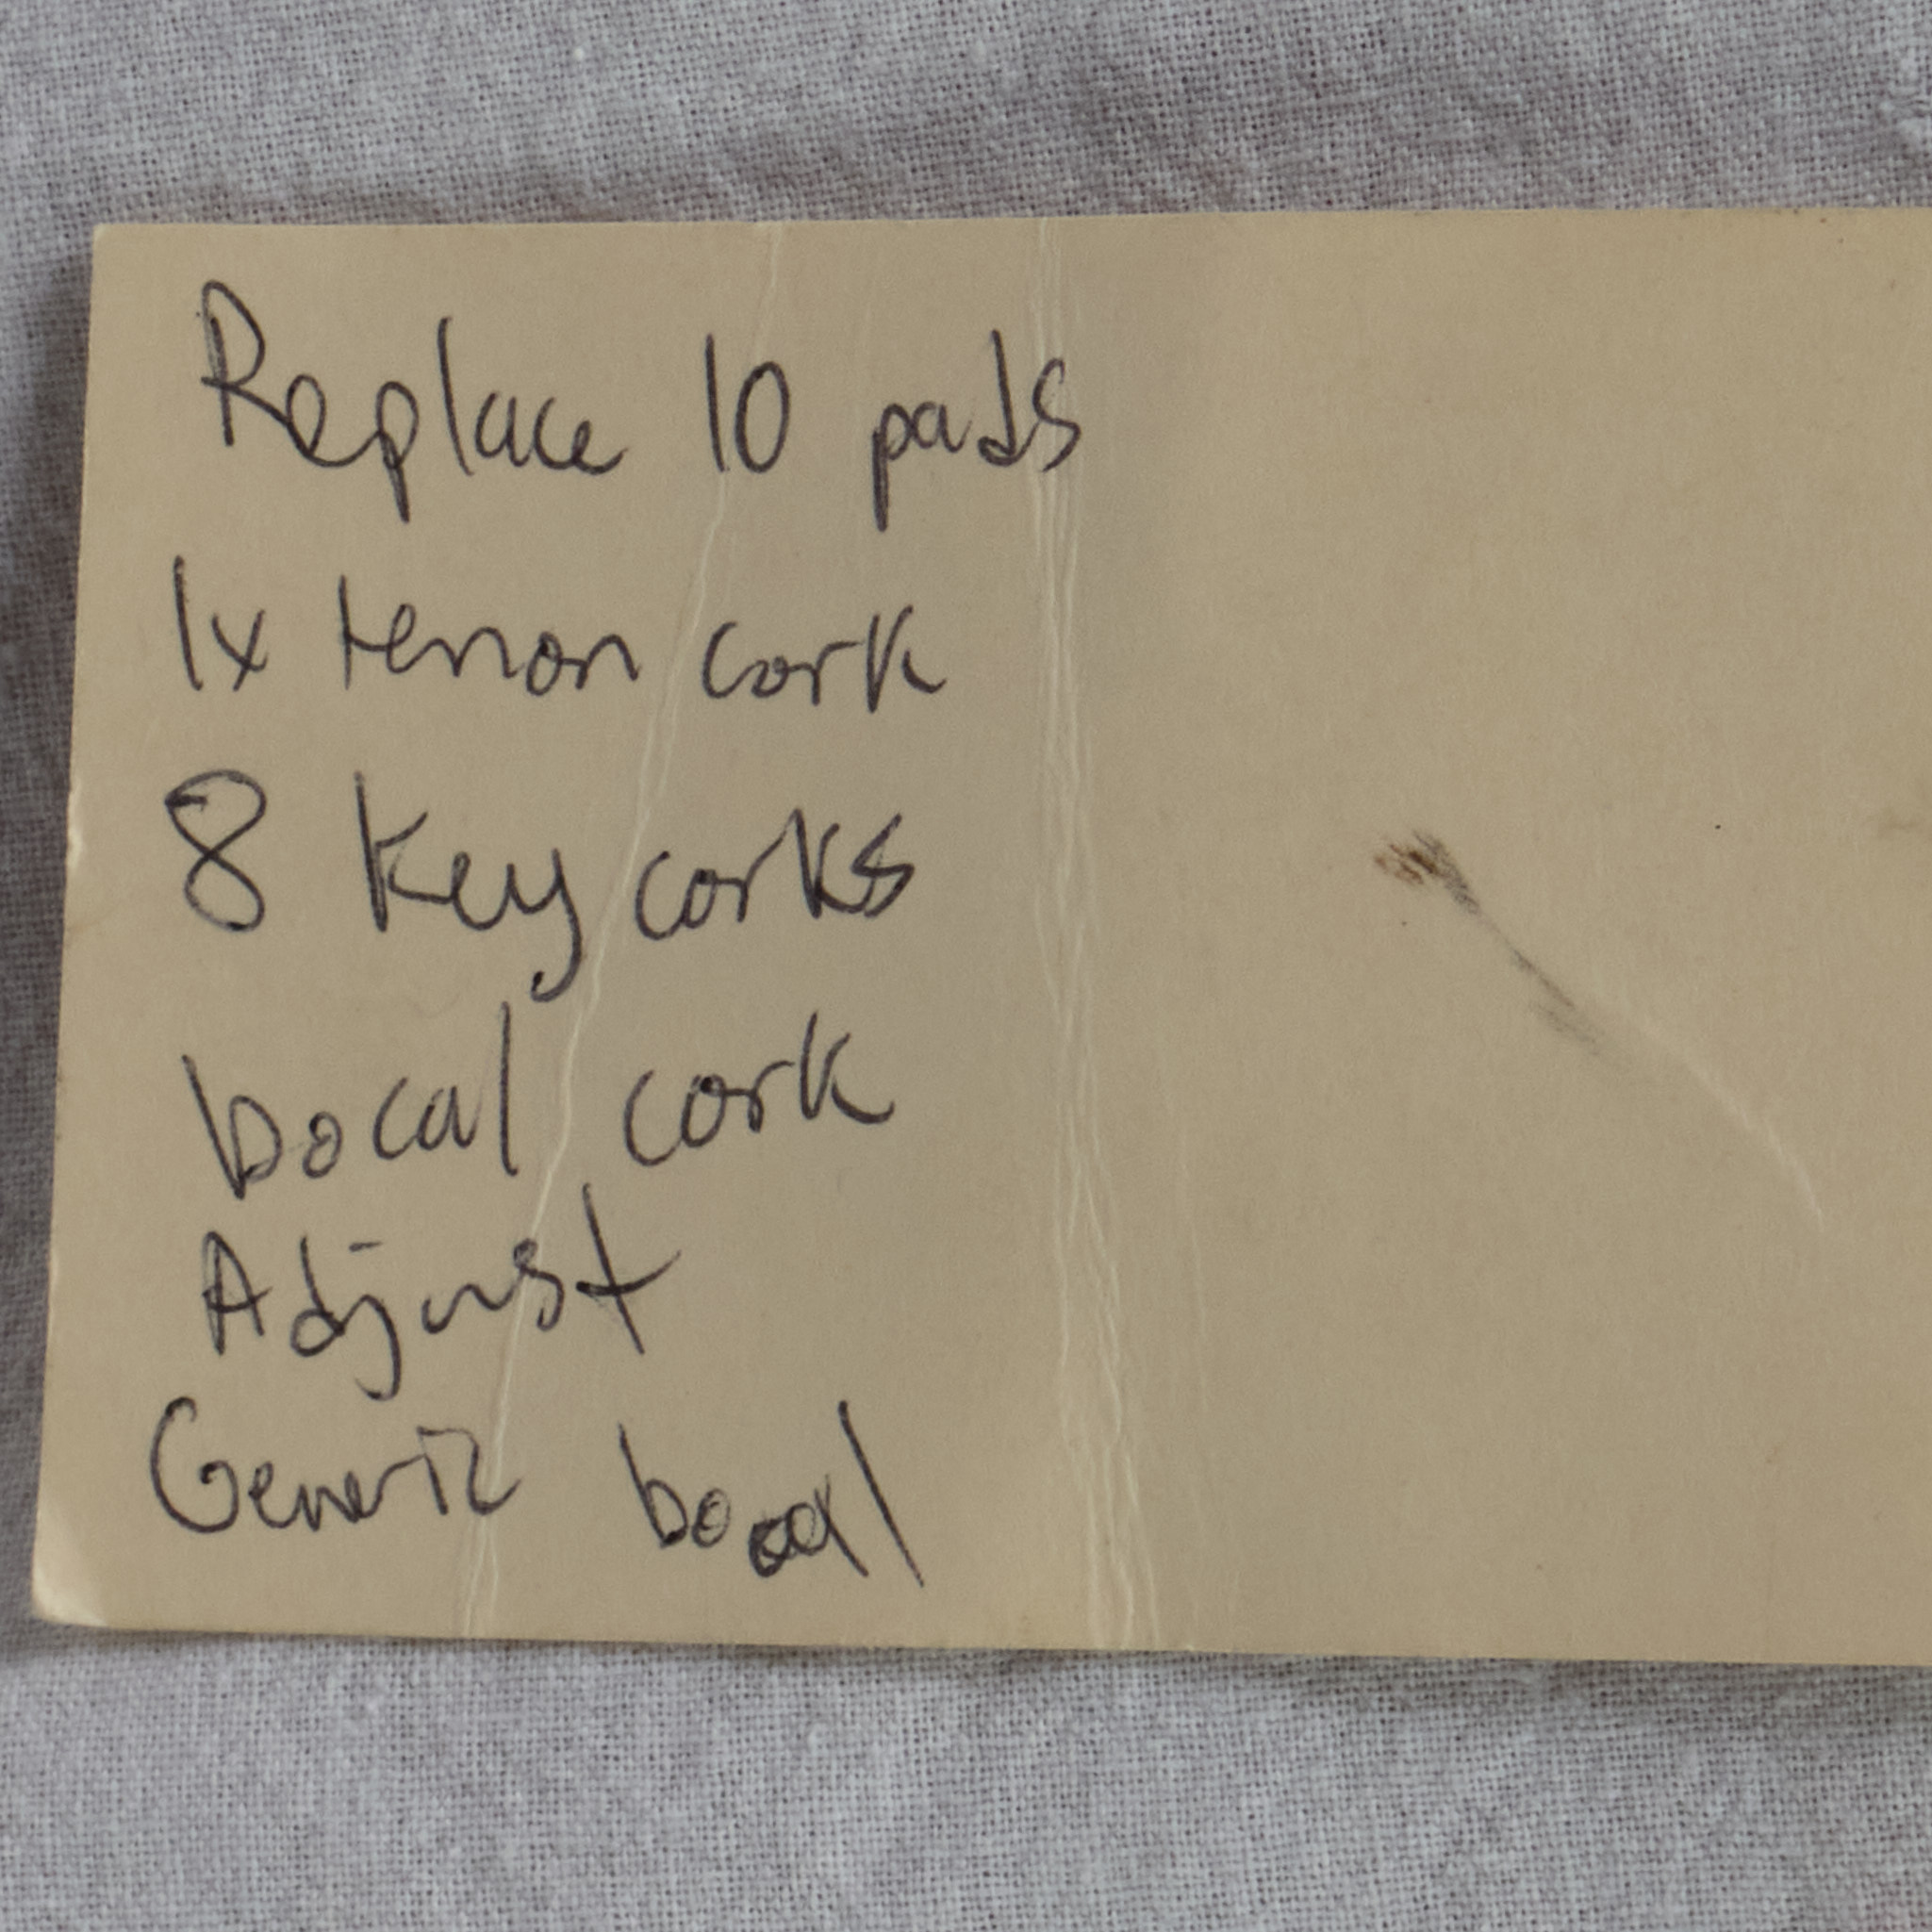 Replace 10 pads
1x tenon cork
8 key corks
bocal cork
Adjust
Generic bocal